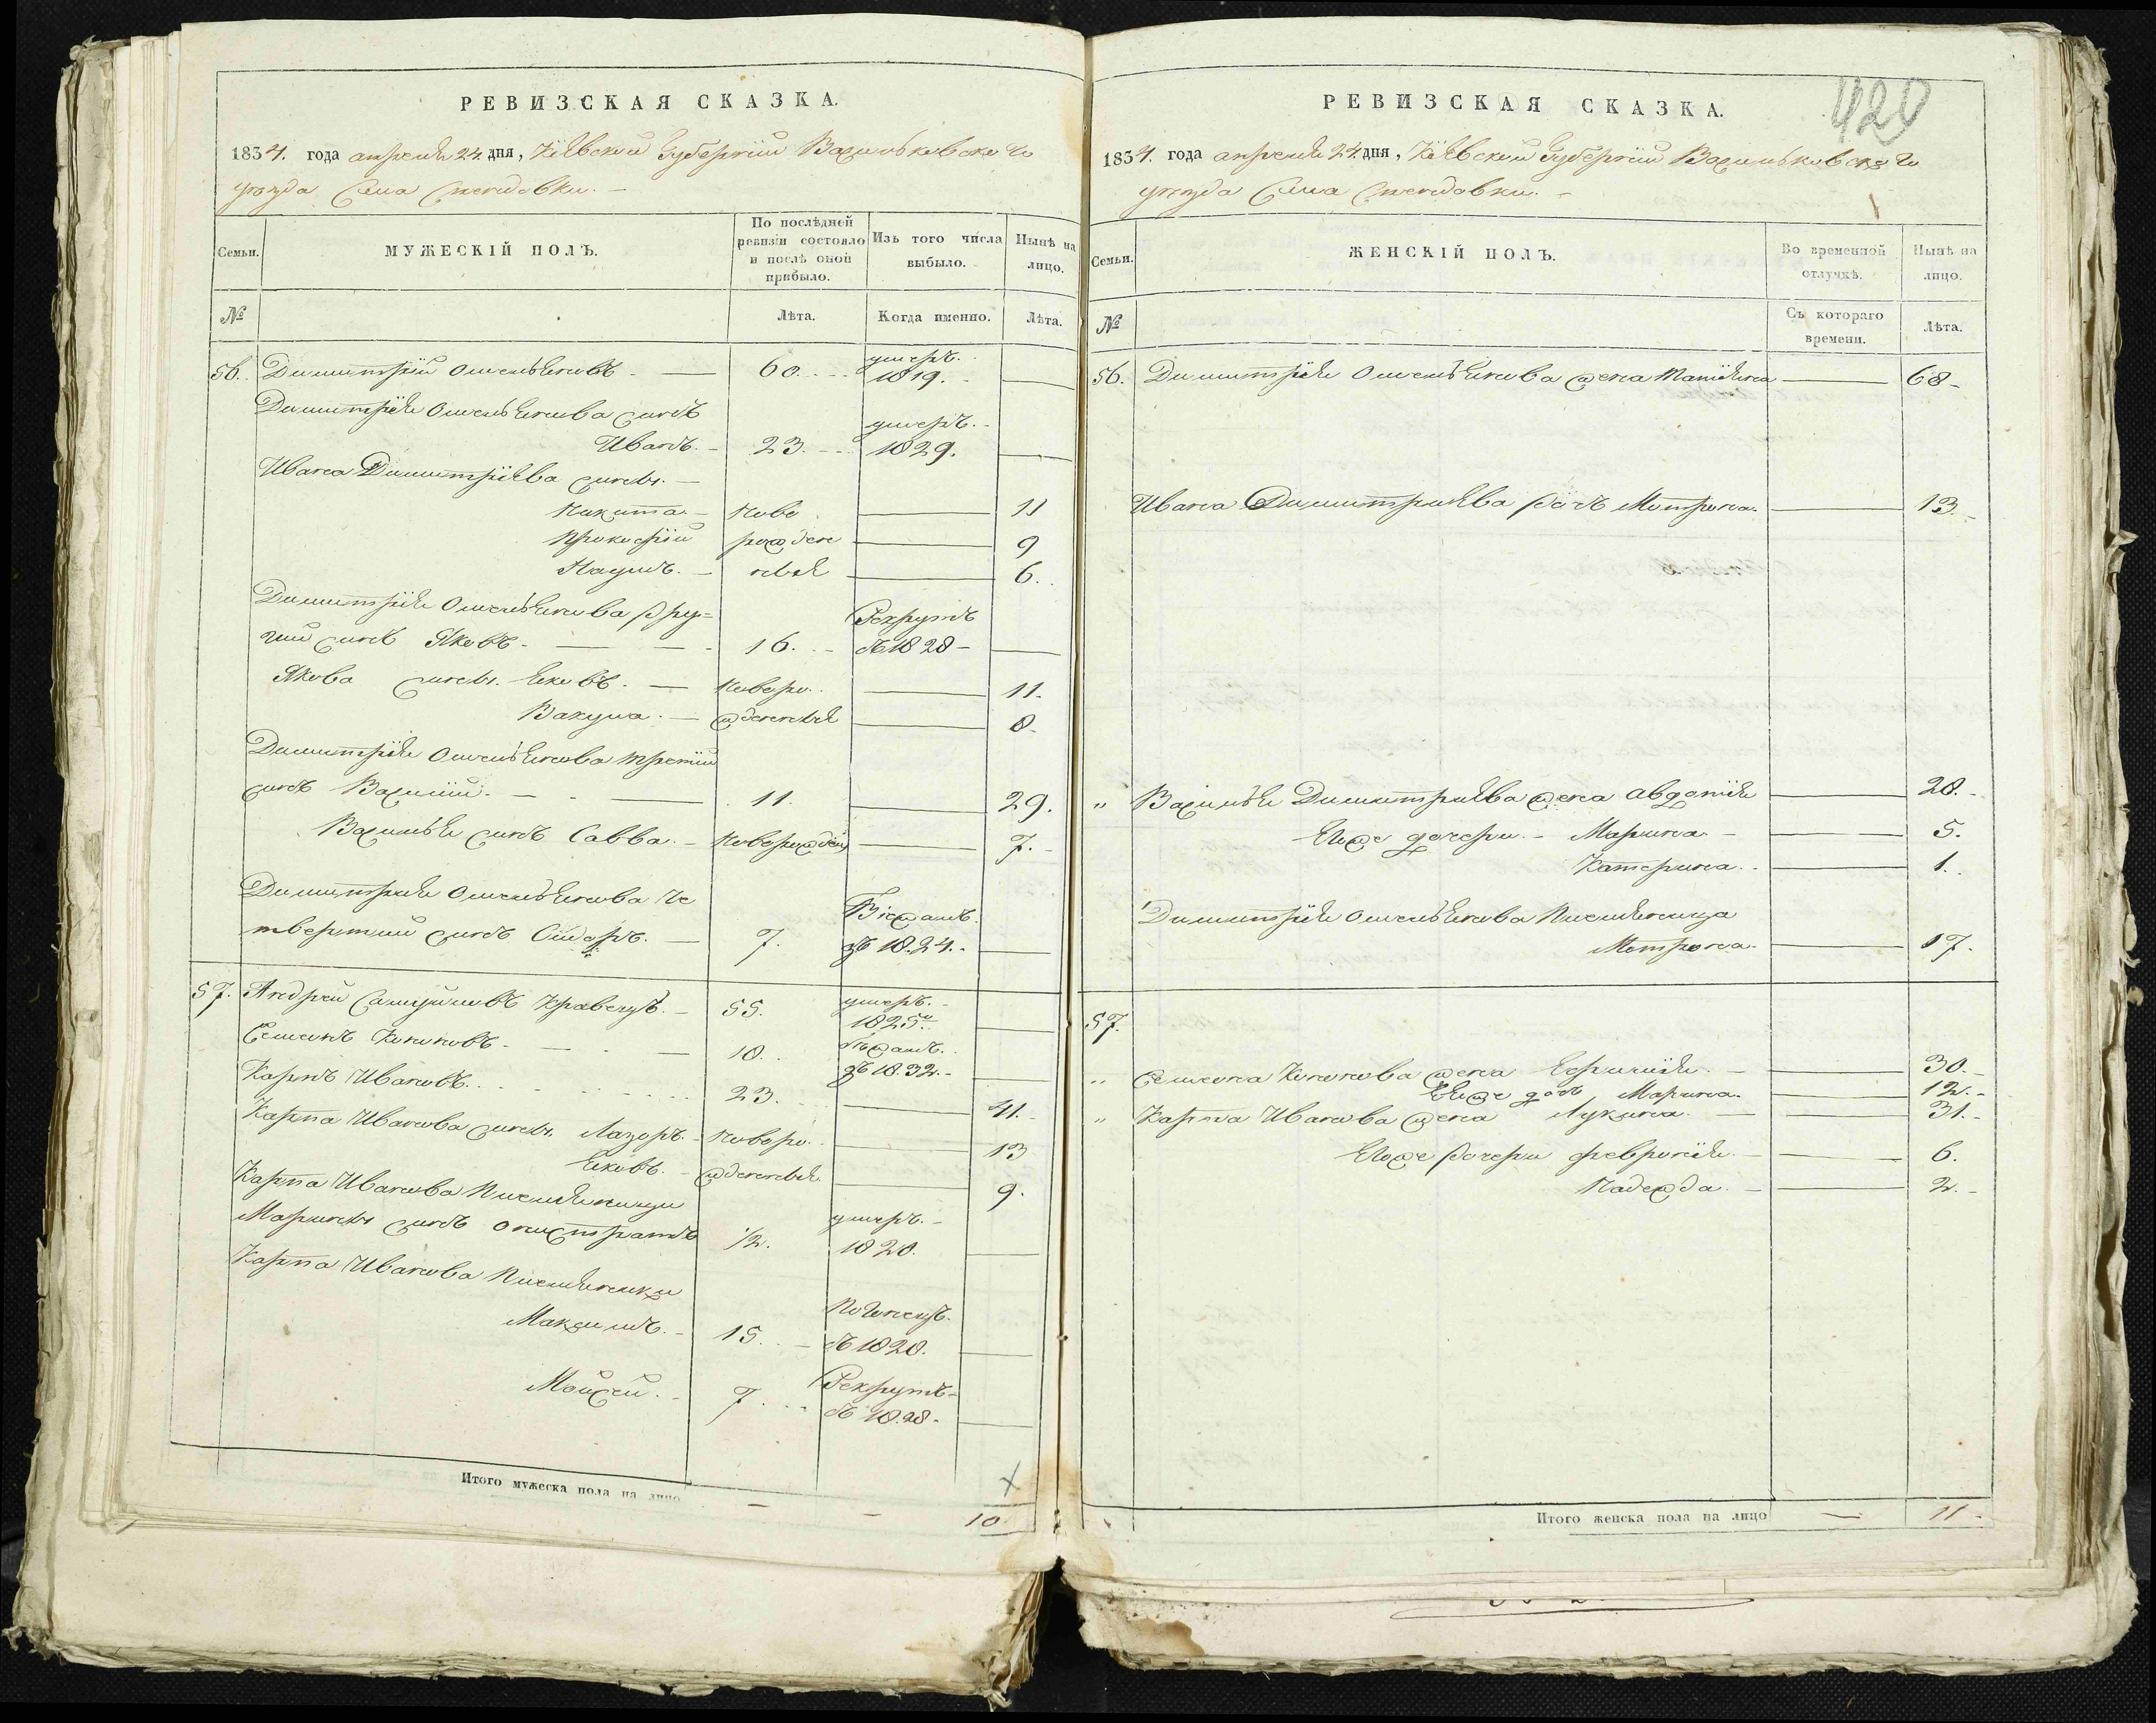 РЕВИЗСКАЯ СКАЗКА.
1834. года апреля 24. дня, Кіевской Губерніи Васильковскаго
уезда Села
Семьи.
МУЖЕСКІЙ ПОЛЪ.
По послѣдней ревизіи состояло и послѣ оной прибыло.
Изъ того числа выбыло.
Нынѣ на лицо.
№
Лѣта.
Когда именно.
Лѣта.
56. Димитрій Омельяновъ. — 60. умеръ. 1819. —
Димитрія Омельянова сынъ
Иванъ. 23. умеръ. 1829. —
Ивана Димитріева сыны. —
Никита. Ново — 11
Прокофій рожден — 9
Наумъ. ныя — 6.
Димитрія Омельянова дру=
гий сынъ Яковъ. — 16. Рекрутъ въ 1828 —
Якова сыны. Яковъ. — Новоро. — 11.
Вакула. — жденныя — 8.
Димитрія Омельянова третій
сынъ Василій. — 11. — 29.
Василья сынъ Савва. Новорожден — 7.
Димитрія Омельянова че
твертый сынъ — 7. Бежалъ. въ 1824. —
57. Андрей Самуйловъ Кравецъ. 55. умеръ. 1825. —
Семенъ Кононовъ. — 18. бежалъ. въ 1832. —
Карпъ Ивановъ. 23. — 41.
Карпа Иванова сыны. Лазоръ. Новоро. — 13
Яковъ. жденныя — 9.
Карпа Иванова племянницы
Марины сынъ ½. умеръ. 1820. —
Карпа Иванова племянники
Максимъ. 15. въ 1828. —
Мойсей. 7. Рекрутъ въ 1828. —
Итого мужеска пола на лицо — — 10
РЕВИЗСКАЯ СКАЗКА.
420
1834. года апреля 24. дня, Кіевской Губерніи Васильковскаго
уезда Села
Семьи.
ЖЕНСКІЙ ПОЛЪ.
Во временной отлучкѣ.
Нынѣ на лицо.
№
Съ котораго времени.
Лѣта.
56. Димитрія Омельянова жена Татіяна — 68
Ивана Димитриева дочь Мотрона. — 13.
" Василья Димитриева жена Авдотія — 28.
Егоже дочери. Марина. — 5.
Катерина. — 1.
Димитрія Омельянова племяница
Мотрона. — 17.
57.
" Семена Кононова жена Ефимія. — 30.
Егоже дочь Марина. — 12.
" Карпа Иванова жена Лукина. — 31.
Егоже дочери Февронія. — 6.
Надежда. — 2.
Итого женска пола на лицо — 11